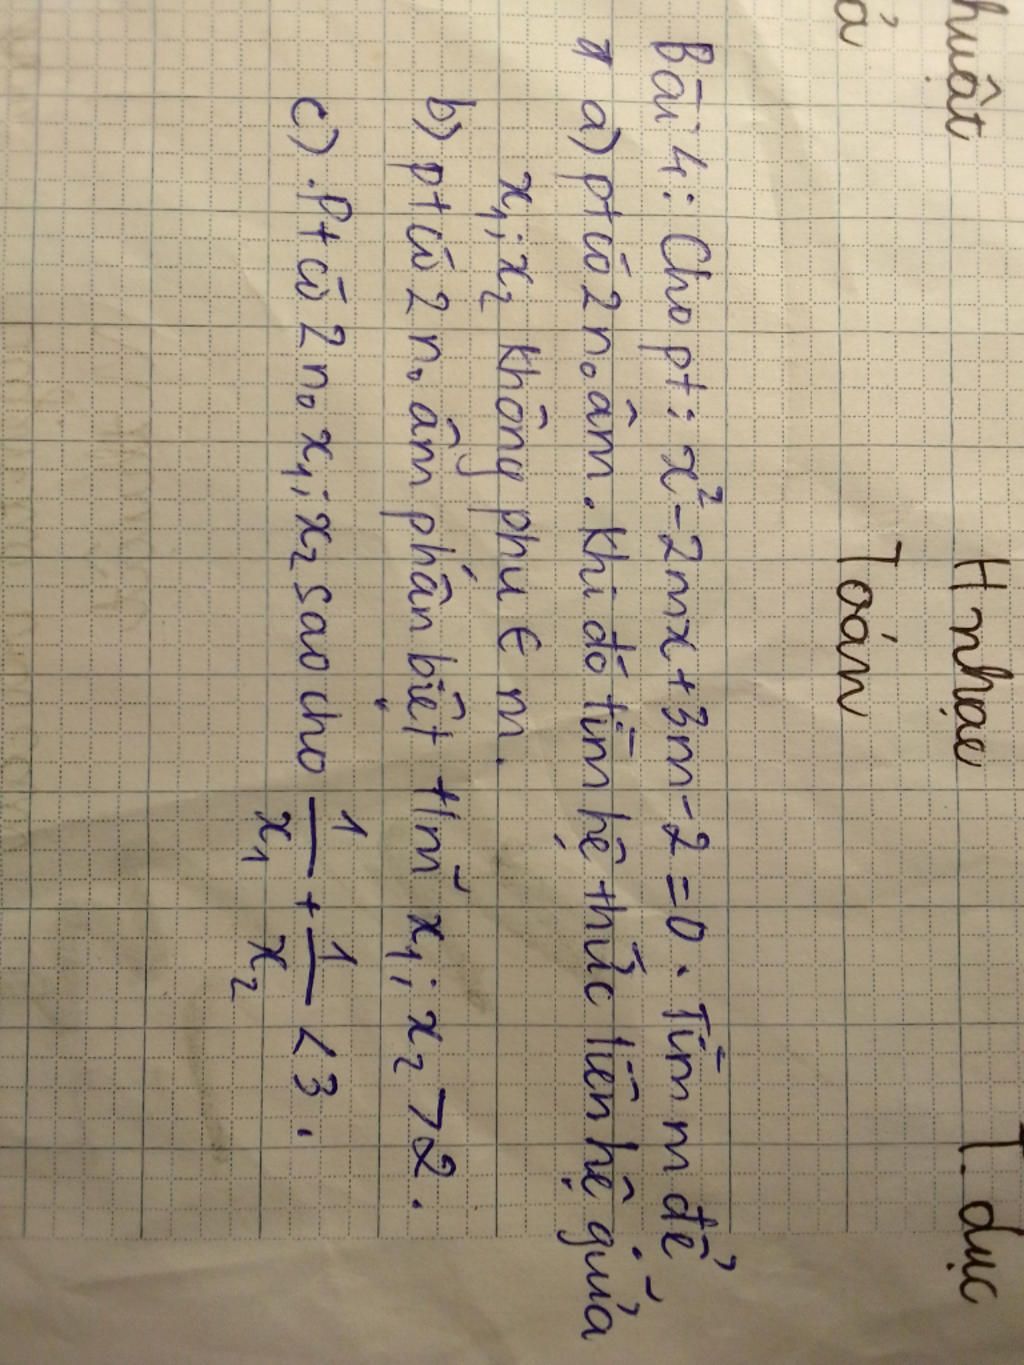 huật H nhạc T. dục
ả Toán
Bài 4: Cho pt: x² - 2mx + 3m - 2 = 0. Tìm m để
a) pt có 2 n₀ âm. Khi đó tìm hệ thức liên hệ giữa
x₁; x₂ không phụ ∈ m.
b) pt có 2 n₀ âm phân biệt t/m x₁; x₂ > 2.
c) . Pt có 2 n₀ x₁; x₂ sao cho 1/x₁ + 1/x₂ < 3.